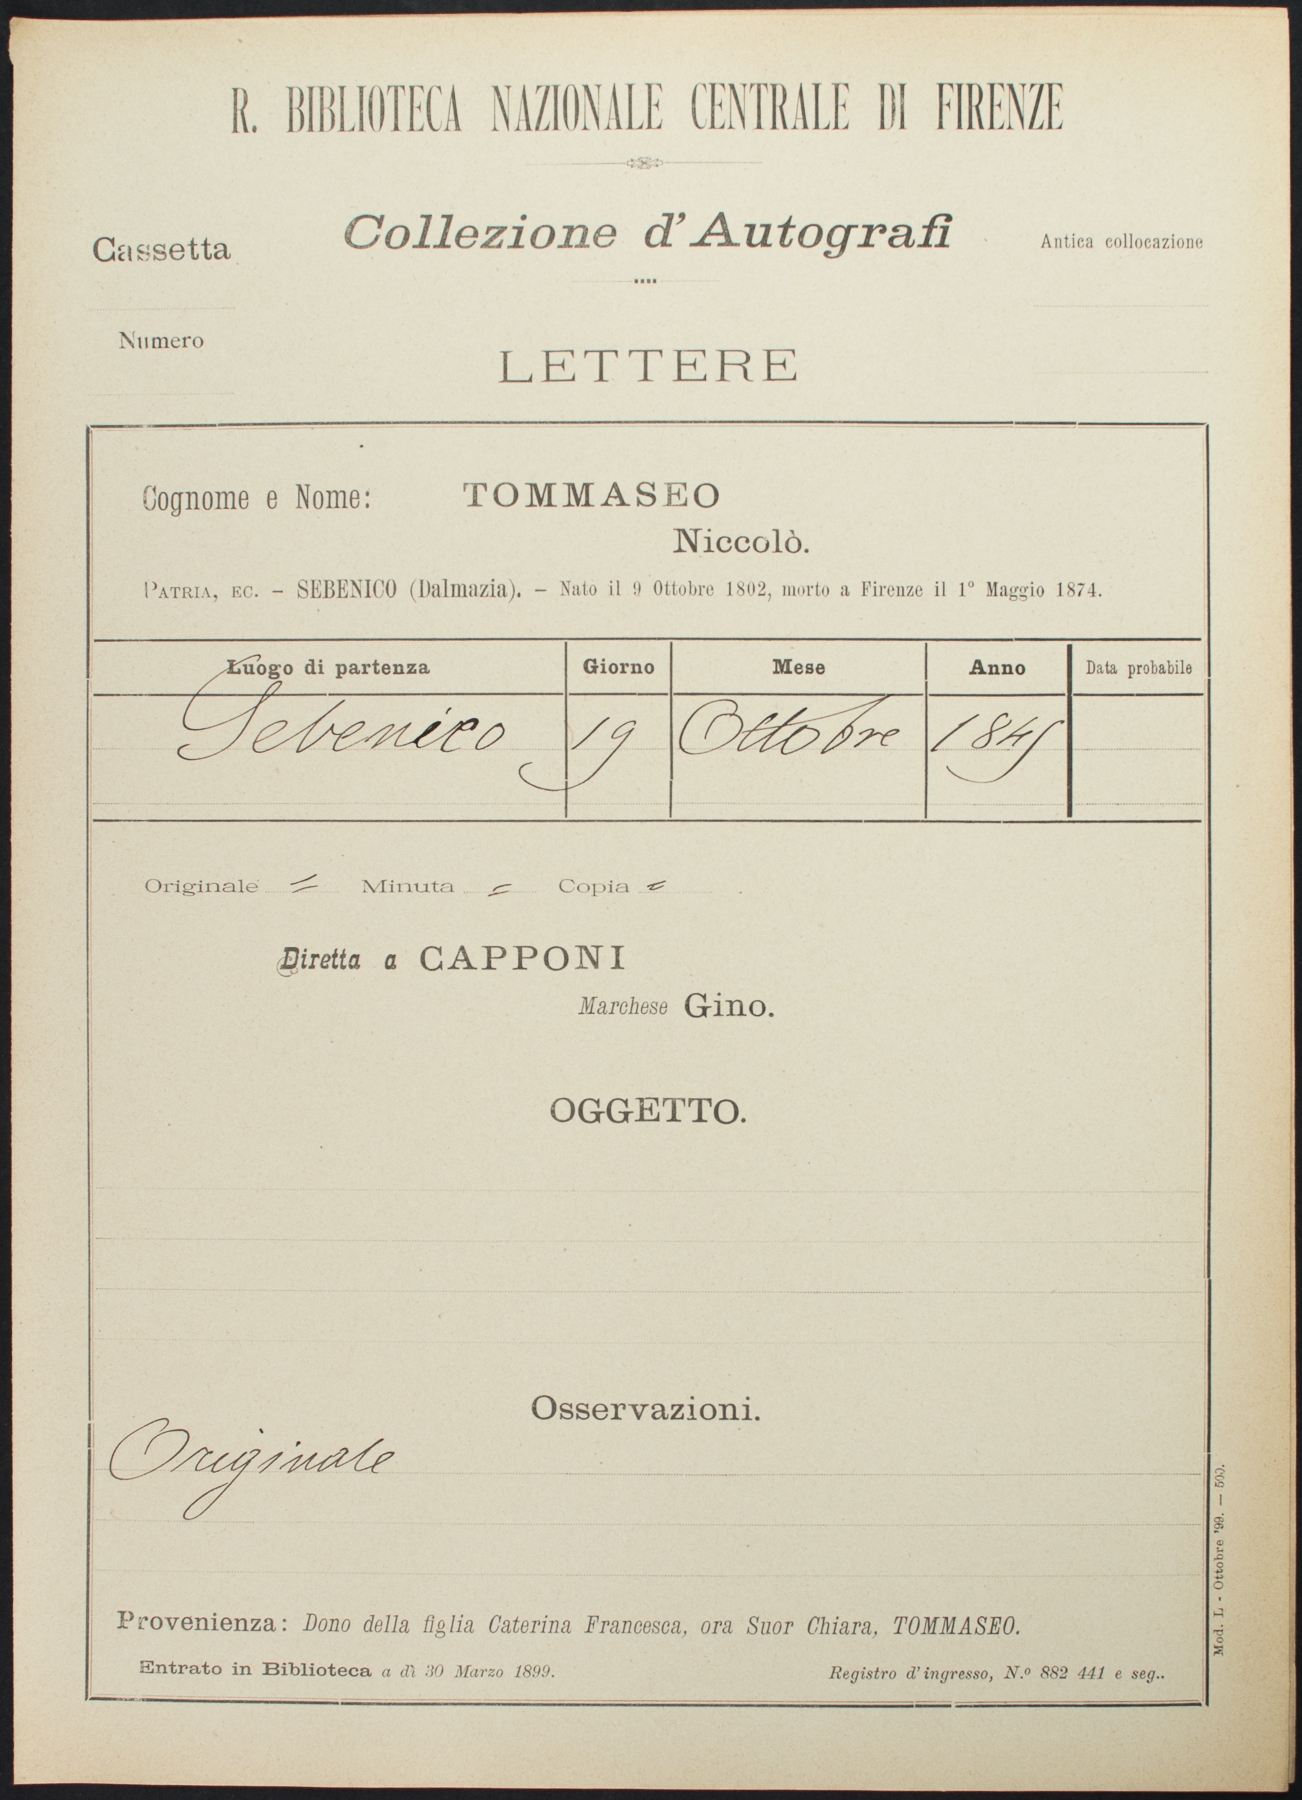 R. BIBLIOTECA NAZIONALE CENTRALE DI FIRENZE
Collezione d'Autografi
Cassetta
Antica collocazione
Numero
LETTERE
Cognome e Nome: TOMMASEO
Niccolò.
PATRIA, EC. – SEBENICO (Dalmazia). – Nato il 9 Ottobre 1802, morto a Firenze il 1º Maggio 1874.
Luogo di partenza Giorno Mese Anno Data probabile
Sebenico 19 Ottobre 1845
Originale = Minuta = Copia =
Diretta a CAPPONI
Marchese Gino.
OGGETTO.
Osservazioni.
Originale
Provenienza: Dono della figlia Caterina Francesca, ora Suor Chiara, TOMMASEO.
Entrato in Biblioteca a dì 30 Marzo 1899. Registro d'ingresso, N.º 882 441 e seg..
Mod. L - Ottobre '99. — 500.